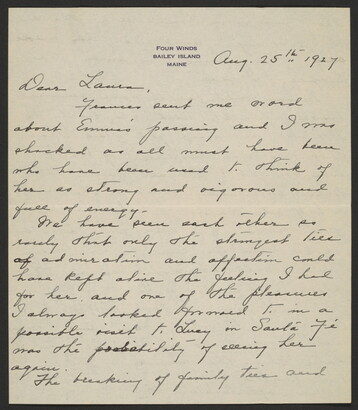 FOUR WINDS
BAILEY ISLAND
MAINE
Aug. 25th 1927
Dear Laura,
Frances sent me word
about Emma's passing and I was
shocked as all must have been
who have been used to think of
her as strong and vigorous and
full of energy.
We have seen each other so
rarely that only the strongest ties
of admiration and affection could
have kept alive the feeling I had
for her and one of the pleasures
I always looked forward to in a
possible visit to Lucy in Santa Fé
was the possibility of seeing her
again.
The breaking of family ties and